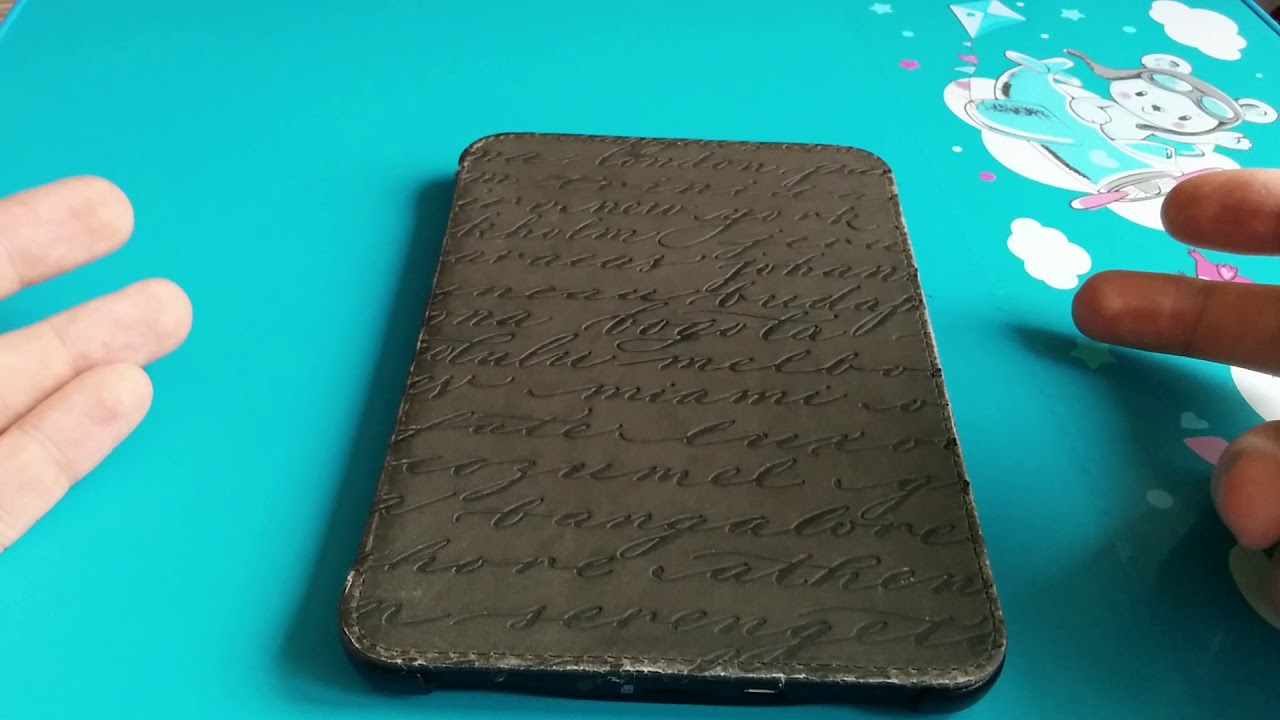 london
new york
kholm
aracas johan
neau budap
ona bogota
olulu melbo
miami
luxo
cozumel
bangalore
hore athen
serenget